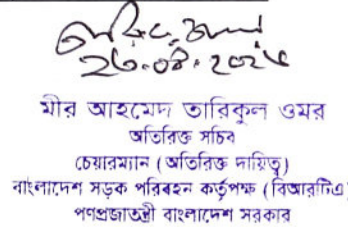 ২৩.০৪.২০২৫
মীর আহমেদ তারিকুল ওমর
অতিরিক্ত সচিব
চেয়ারম্যান (অতিরিক্ত দায়িত্ব)
বাংলাদেশ সড়ক পরিবহন কর্তৃপক্ষ (বিআরটিএ)
গণপ্রজাতন্ত্রী বাংলাদেশ সরকার